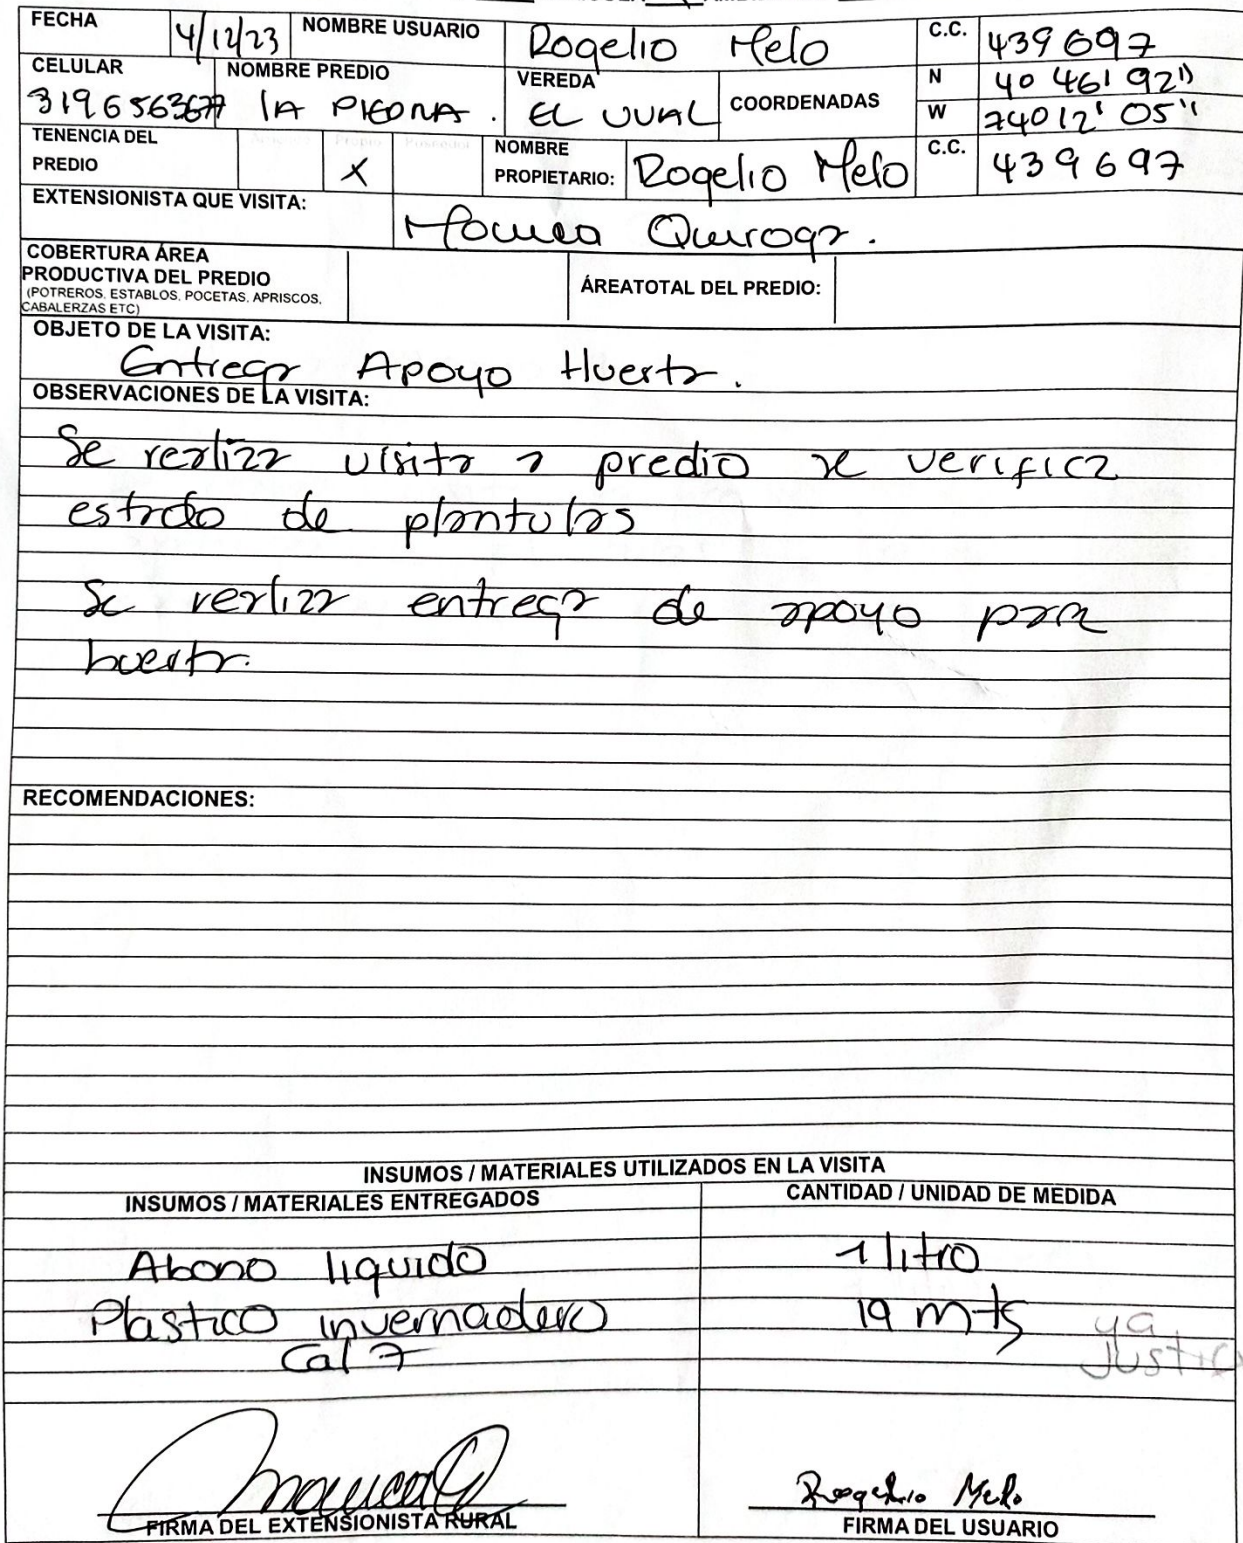 FECHA 4/12/23 NOMBRE USUARIO Rogelio Melo C.C. 439697
CELULAR 3196563677 NOMBRE PREDIO LA PIEDRA. VEREDA EL UVAL COORDENADAS N 4º 46' 92''
W 74º 12' 05''
TENENCIA DEL PREDIO Propio Poseedor X NOMBRE PROPIETARIO: Rogelio Melo C.C. 439697
EXTENSIONISTA QUE VISITA: Quiroga.
COBERTURA ÁREA
PRODUCTIVA DEL PREDIO ÁREATOTAL DEL PREDIO:
(POTREROS, ESTABLOS, POCETAS, APRISCOS,
CABALERZAS ETC)
OBJETO DE LA VISITA:
Entrega Apoyo Huerta.
OBSERVACIONES DE LA VISITA:
Se realiza visita a predio se verifica
estado de plantulas
Se realiza entrega de apoyo para
huerta.
RECOMENDACIONES:
INSUMOS / MATERIALES UTILIZADOS EN LA VISITA
INSUMOS / MATERIALES ENTREGADOS CANTIDAD / UNIDAD DE MEDIDA
Abono liquido 1 litro
Plastico invernadero 19 mts ya
Cal 7
FIRMA DEL EXTENSIONISTA RURAL
Rogelio Melo
FIRMA DEL USUARIO